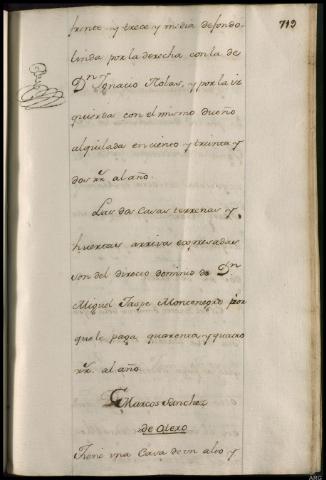 713
frente y trece y media de fondo
linda por la derecha con la de
Dn Ignacio Nolas, y por la iz
quierda con el mismo dueño
alquilada en ciento y treinta y
dos rr. al año.
Las dos Casas terrenas y
huertas arriva expresadas
son del directo dominio de Dn
Miguel Taspe Montenegro por
que le paga quarenta y quatro
rr. al año.
Marcos Sanchez
de Otero
Tiene una Casa de un alto y
ARG